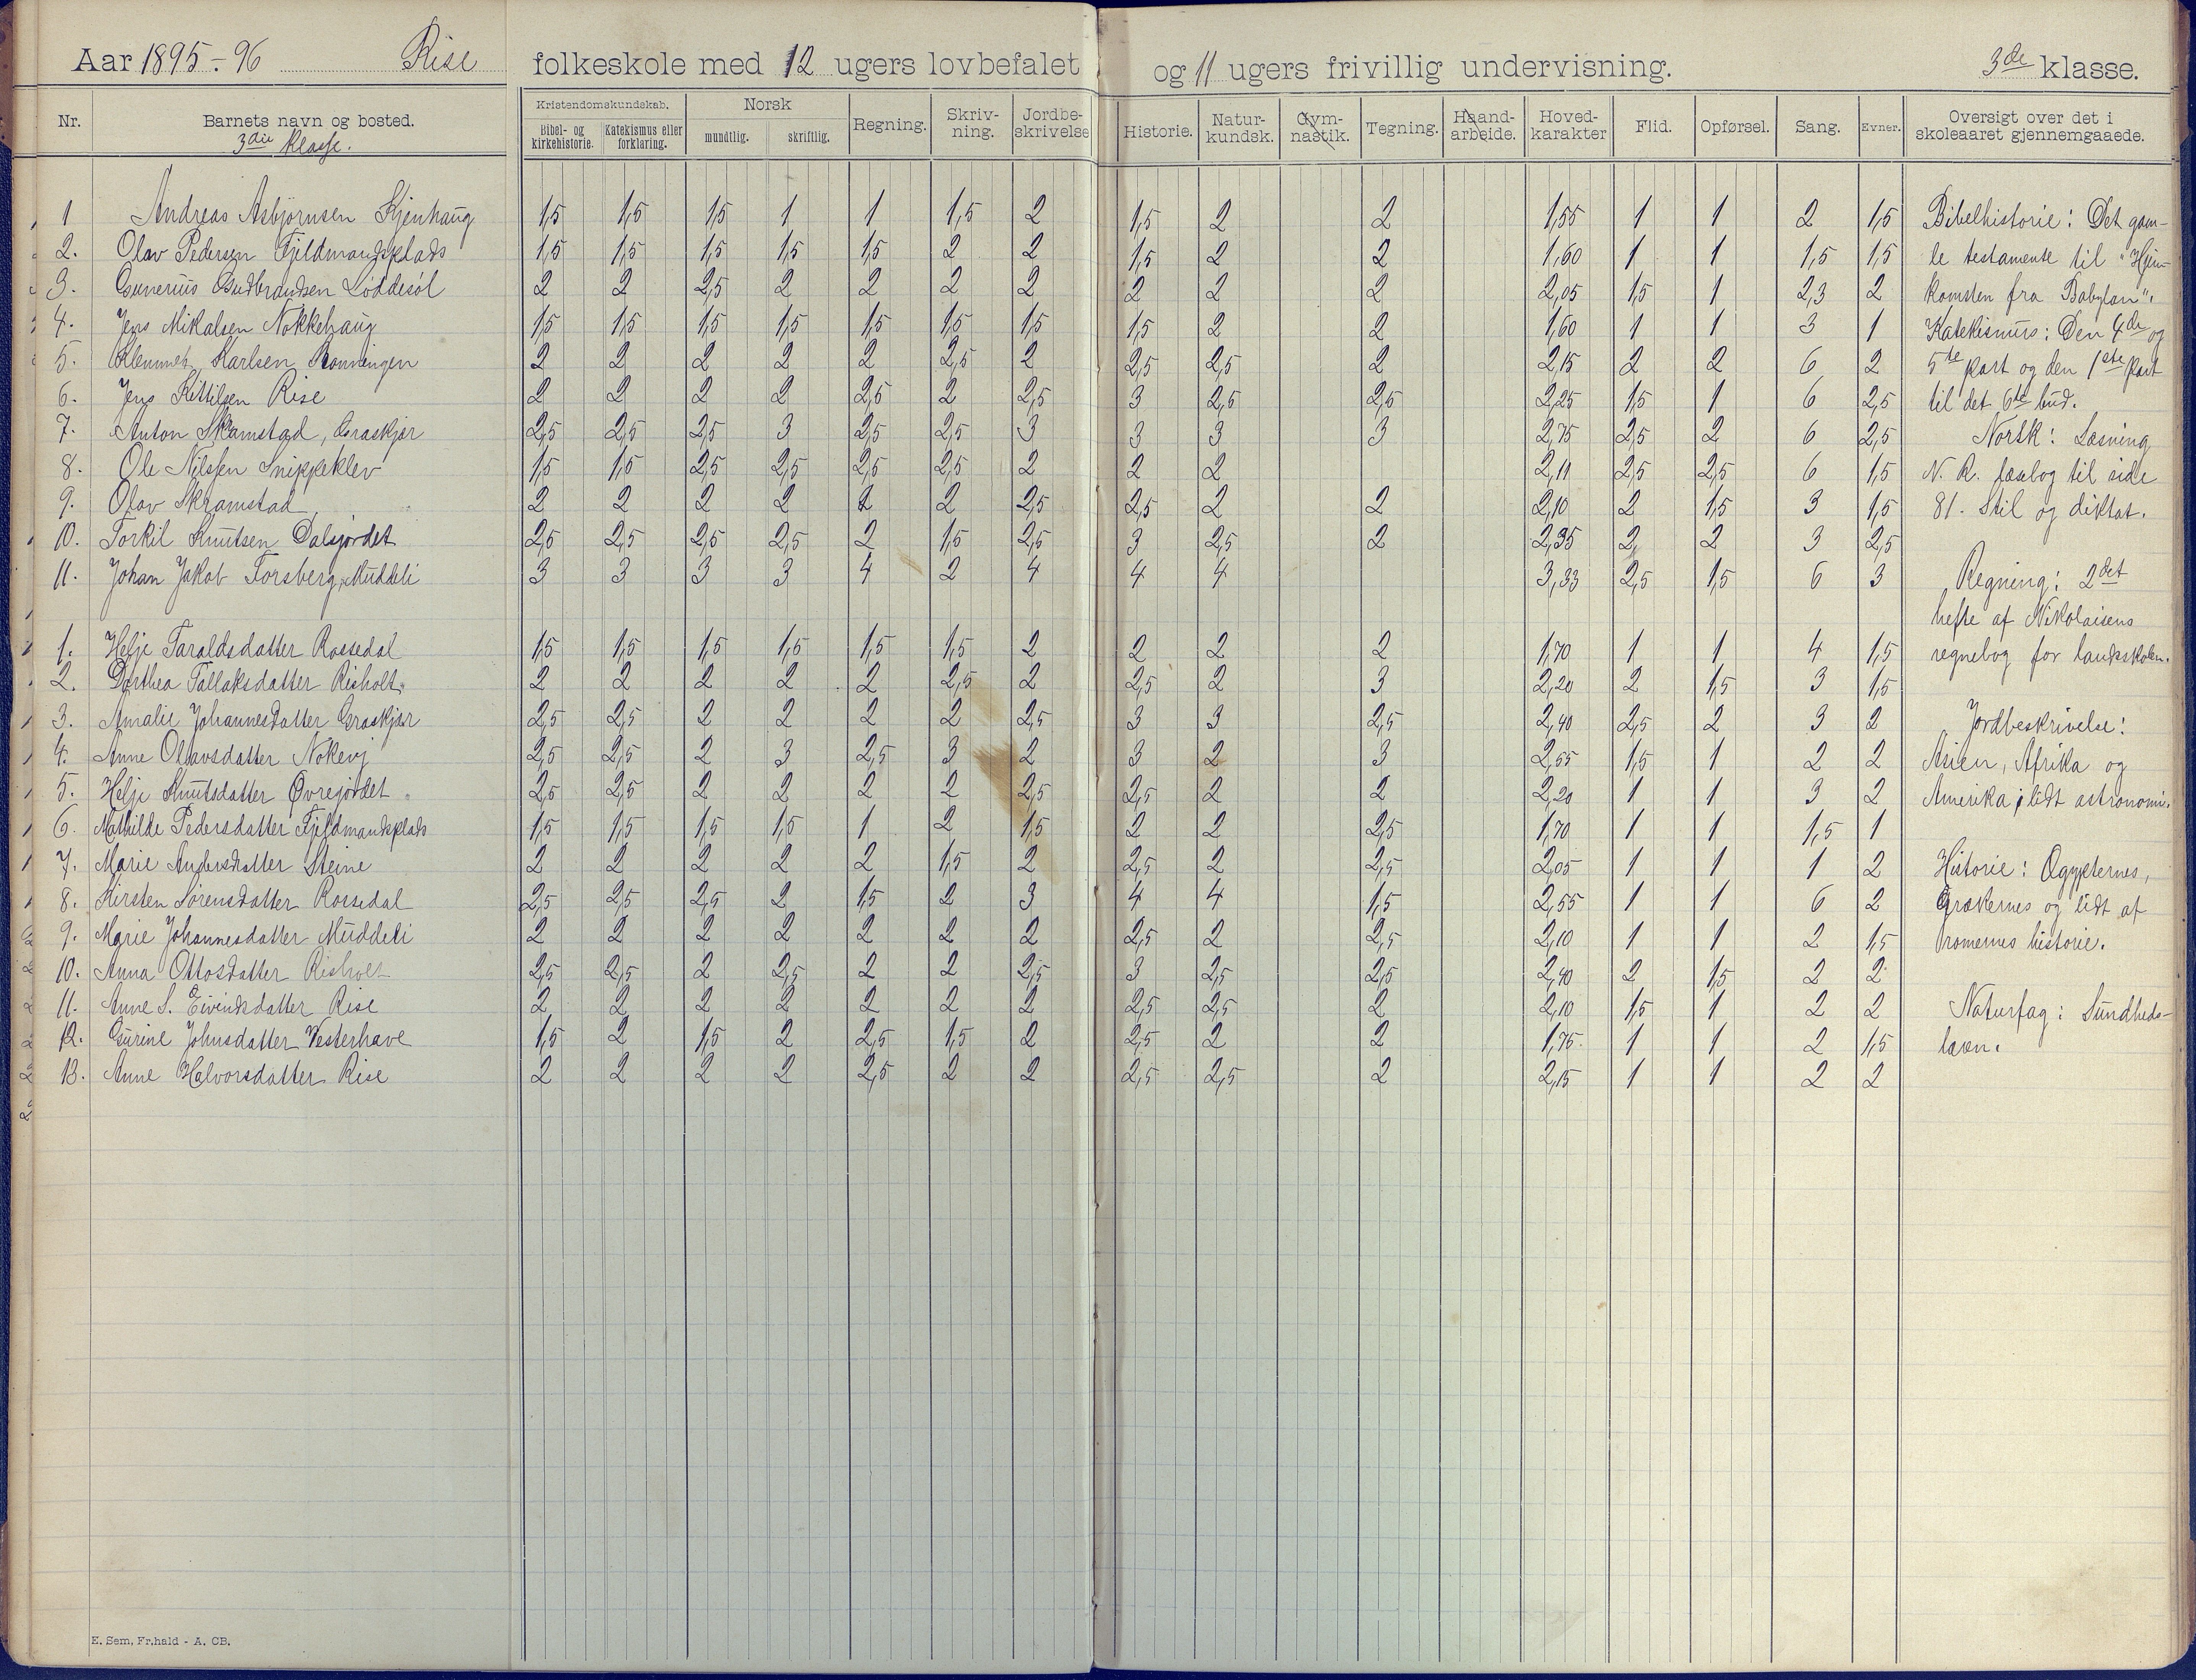 Aar 1895-96 Rise folkeskole med 12 ugers lovbefalet og 11 ugers frivillig undervisning. 3de klasse.
Nr. Barnets navn og bosted. Kristendomskundskab. Bibel- og kirkehistorie. Katekismus eller forklaring. Norsk mundtlig. skriftlig. Regning. Skriv-ning. Jordbe-skrivelse Historie. Natur-kundsk. Gym-nastik. Tegning. Haand-arbeide. Hoved-karakter Flid. Opførsel. Sang. Evner. Oversigt over det i skoleaaret gjennemgaaede.
3die klasse.
1 Andreas Asbjørnsen Kjenhaug 1,5 1,5 1,5 1 1 1,5 2 1,5 2 2 1,55 1 1 2 1,5
2. Olav Pedersen Fjeldmandsplads 1,5 1,5 1,5 1,5 1,5 2 2 1,5 2 2 1,60 1 1 1,5 1,5
3. Gunerius Gudbrandsen Løddesøl 2 2 2,5 2 2 2 2 2 2 2 2,05 1,5 1 2,3 2
4. Jens Mikalsen Nokkehaug 1,5 1,5 1,5 1,5 1,5 1,5 1,5 1,5 2 2 1,60 1 1 3 1
5. Klemmet Karlsen Rønningen 2 2 2 2 2 2,5 2 2,5 2,5 2 2,15 2 2 6 2
6. Jens Kittilsen Rise 2 2 2 2 2,5 2 2,5 3 2,5 2,5 2,25 1,5 1 6 2,5
7. Anton Skamstad, Graskjær 2,5 2,5 2,5 3 2,5 2,5 3 3 3 3 2,75 2,5 2 6 2,5
8. Ole Nilsen Snippeklev 1,5 1,5 2,5 2,5 2,5 2,5 2 2 2 2,11 2,5 2,5 6 1,5
9. Olav Skramstad 2 2 2 2 2 2 2,5 2,5 2 2 2,10 2 1,5 3 1,5
10. Torkil Knutsen Dalsjordet 2,5 2,5 2,5 2,5 2 1,5 2,5 3 2,5 2 2,35 2 2 3 2,5
11. Johan Jakob Forsberg, Muddeli 3 3 3 3 4 2 4 4 4 3,33 2,5 1,5 6 3
1. Helje Taraldsdatter Rossedal 1,5 1,5 1,5 1,5 1,5 1,5 2 2 2 2 1,70 1 1 4 1,5
2. Dorthea Tallaksdatter Risholt. 2 2 2 2 2 2,5 2 2,5 2 3 2,20 2 1,5 3 1,5
3. Amalie Johannesdatter Graskjær 2,5 2,5 2 2 2 2 2,5 3 3 2,5 2,40 2,5 2 3 2
4. Anne Olavsdatter Nokevj 2,5 2,5 2 3 2,5 3 2 3 2 3 2,55 1,5 1 2 2
5. Helje Knutsdatter Øvrejordet 2,5 2,5 2 2 2 2 2,5 2,5 2 2 2,20 1 1 3 2
6. Mathilde Pedersdatter Fjeldmandsplads 1,5 1,5 1,5 1,5 1 2 1,5 2 2 2,5 1,70 1 1 1,5 1
7. Marie Andersdatter Steine 2 2 2 2 2 1,5 2 2,5 2 2,5 2,05 1 1 1 2
8. Kirsten Sørensdatter Rossedal 2,5 2,5 2,5 2 1,5 2 3 4 4 1,5 2,55 1 1 6 2
9. Marie Johannesdatter Muddeli 2 2 2 2 2 2 2 2,5 2 2,5 2,10 1 1 2 1,5
10. Anna Ottosdatter Risholt 2,5 2,5 2 2,5 2 2 2,5 3 2,5 2,5 2,40 2 1,5 2 2
11. Anne S. Eivindsdatter Rise 2 2 2 2 2 2 2 2,5 2,5 2 2,10 1,5 1 2 2
12. Gurine Johnsdatter Vesterhave 1,5 2 1,5 2 2,5 1,5 2 2,5 2 2 1,75 1 1 2 1,5
13. Anne Halvorsdatter Rise 2 2 2 2 2,5 2 2 2,5 2,5 2 2,15 1 1 2 2
Bibelhistorie: Det gam-
le testamente til "Hjem-
komsten fra Babylon".
Katekismus: Den 4de og
5te part og den 1ste part
til det 6te bud.
Norsk: Læsning
N. R. læsebog til side
81. Stil og diktat.
Regning: 2det
hefte af Nikolaisens
regnebog for landskolen.
Jordbeskrivelse:
Asien, Afrika og
Amerika; lidt astronomi.
Historie: Ægypternes,
Grækernes og lidt af
romernes historie.
Naturfag: Sundheds-
læren.
E. Sem, Fr.hald - A. CB.